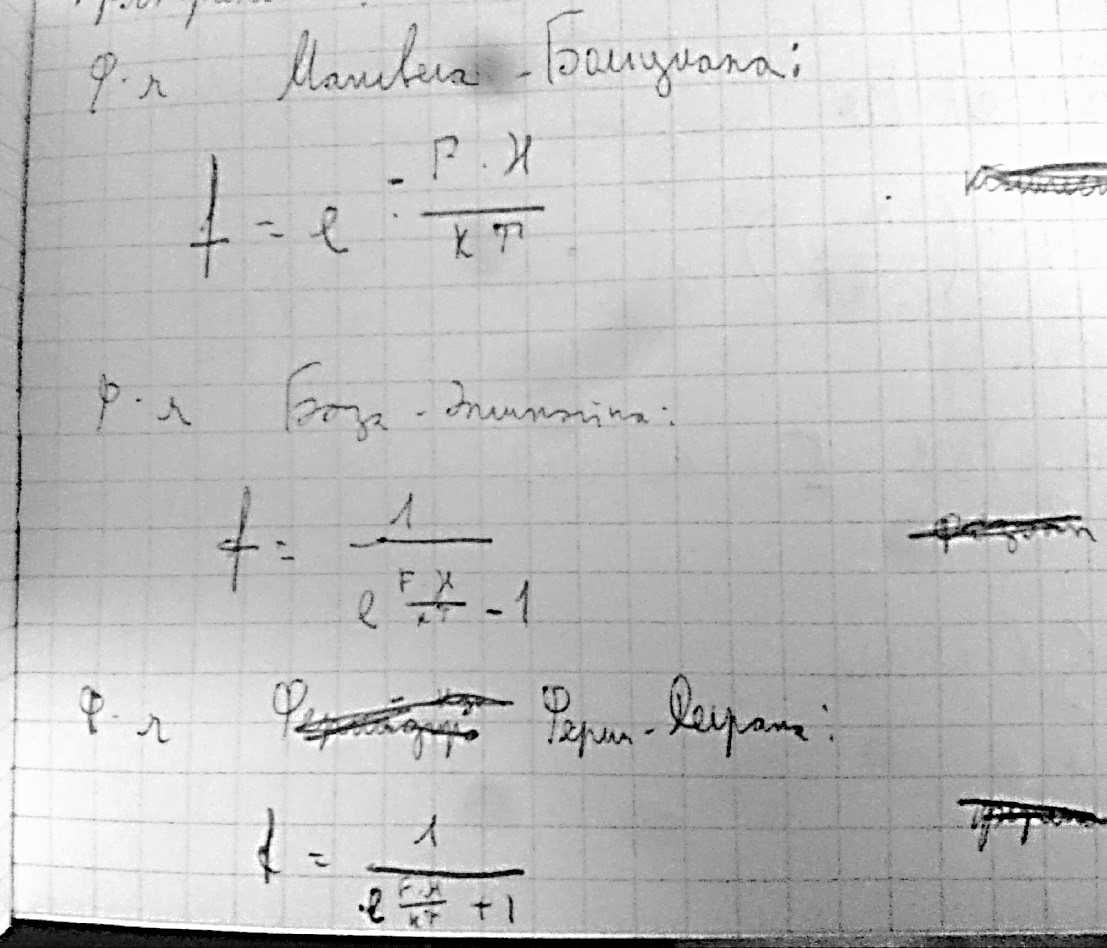 Ф-я Максвела-Больцмана:
f = e^{-\frac{F·H}{kT}}
Ф-я Бозе-Эйнштейна:
f = \frac{1}{e^{\frac{F·H}{kT}} - 1}
Ф-я Ферми-Дирака:
f = \frac{1}{e^{\frac{F·H}{kT}} + 1}